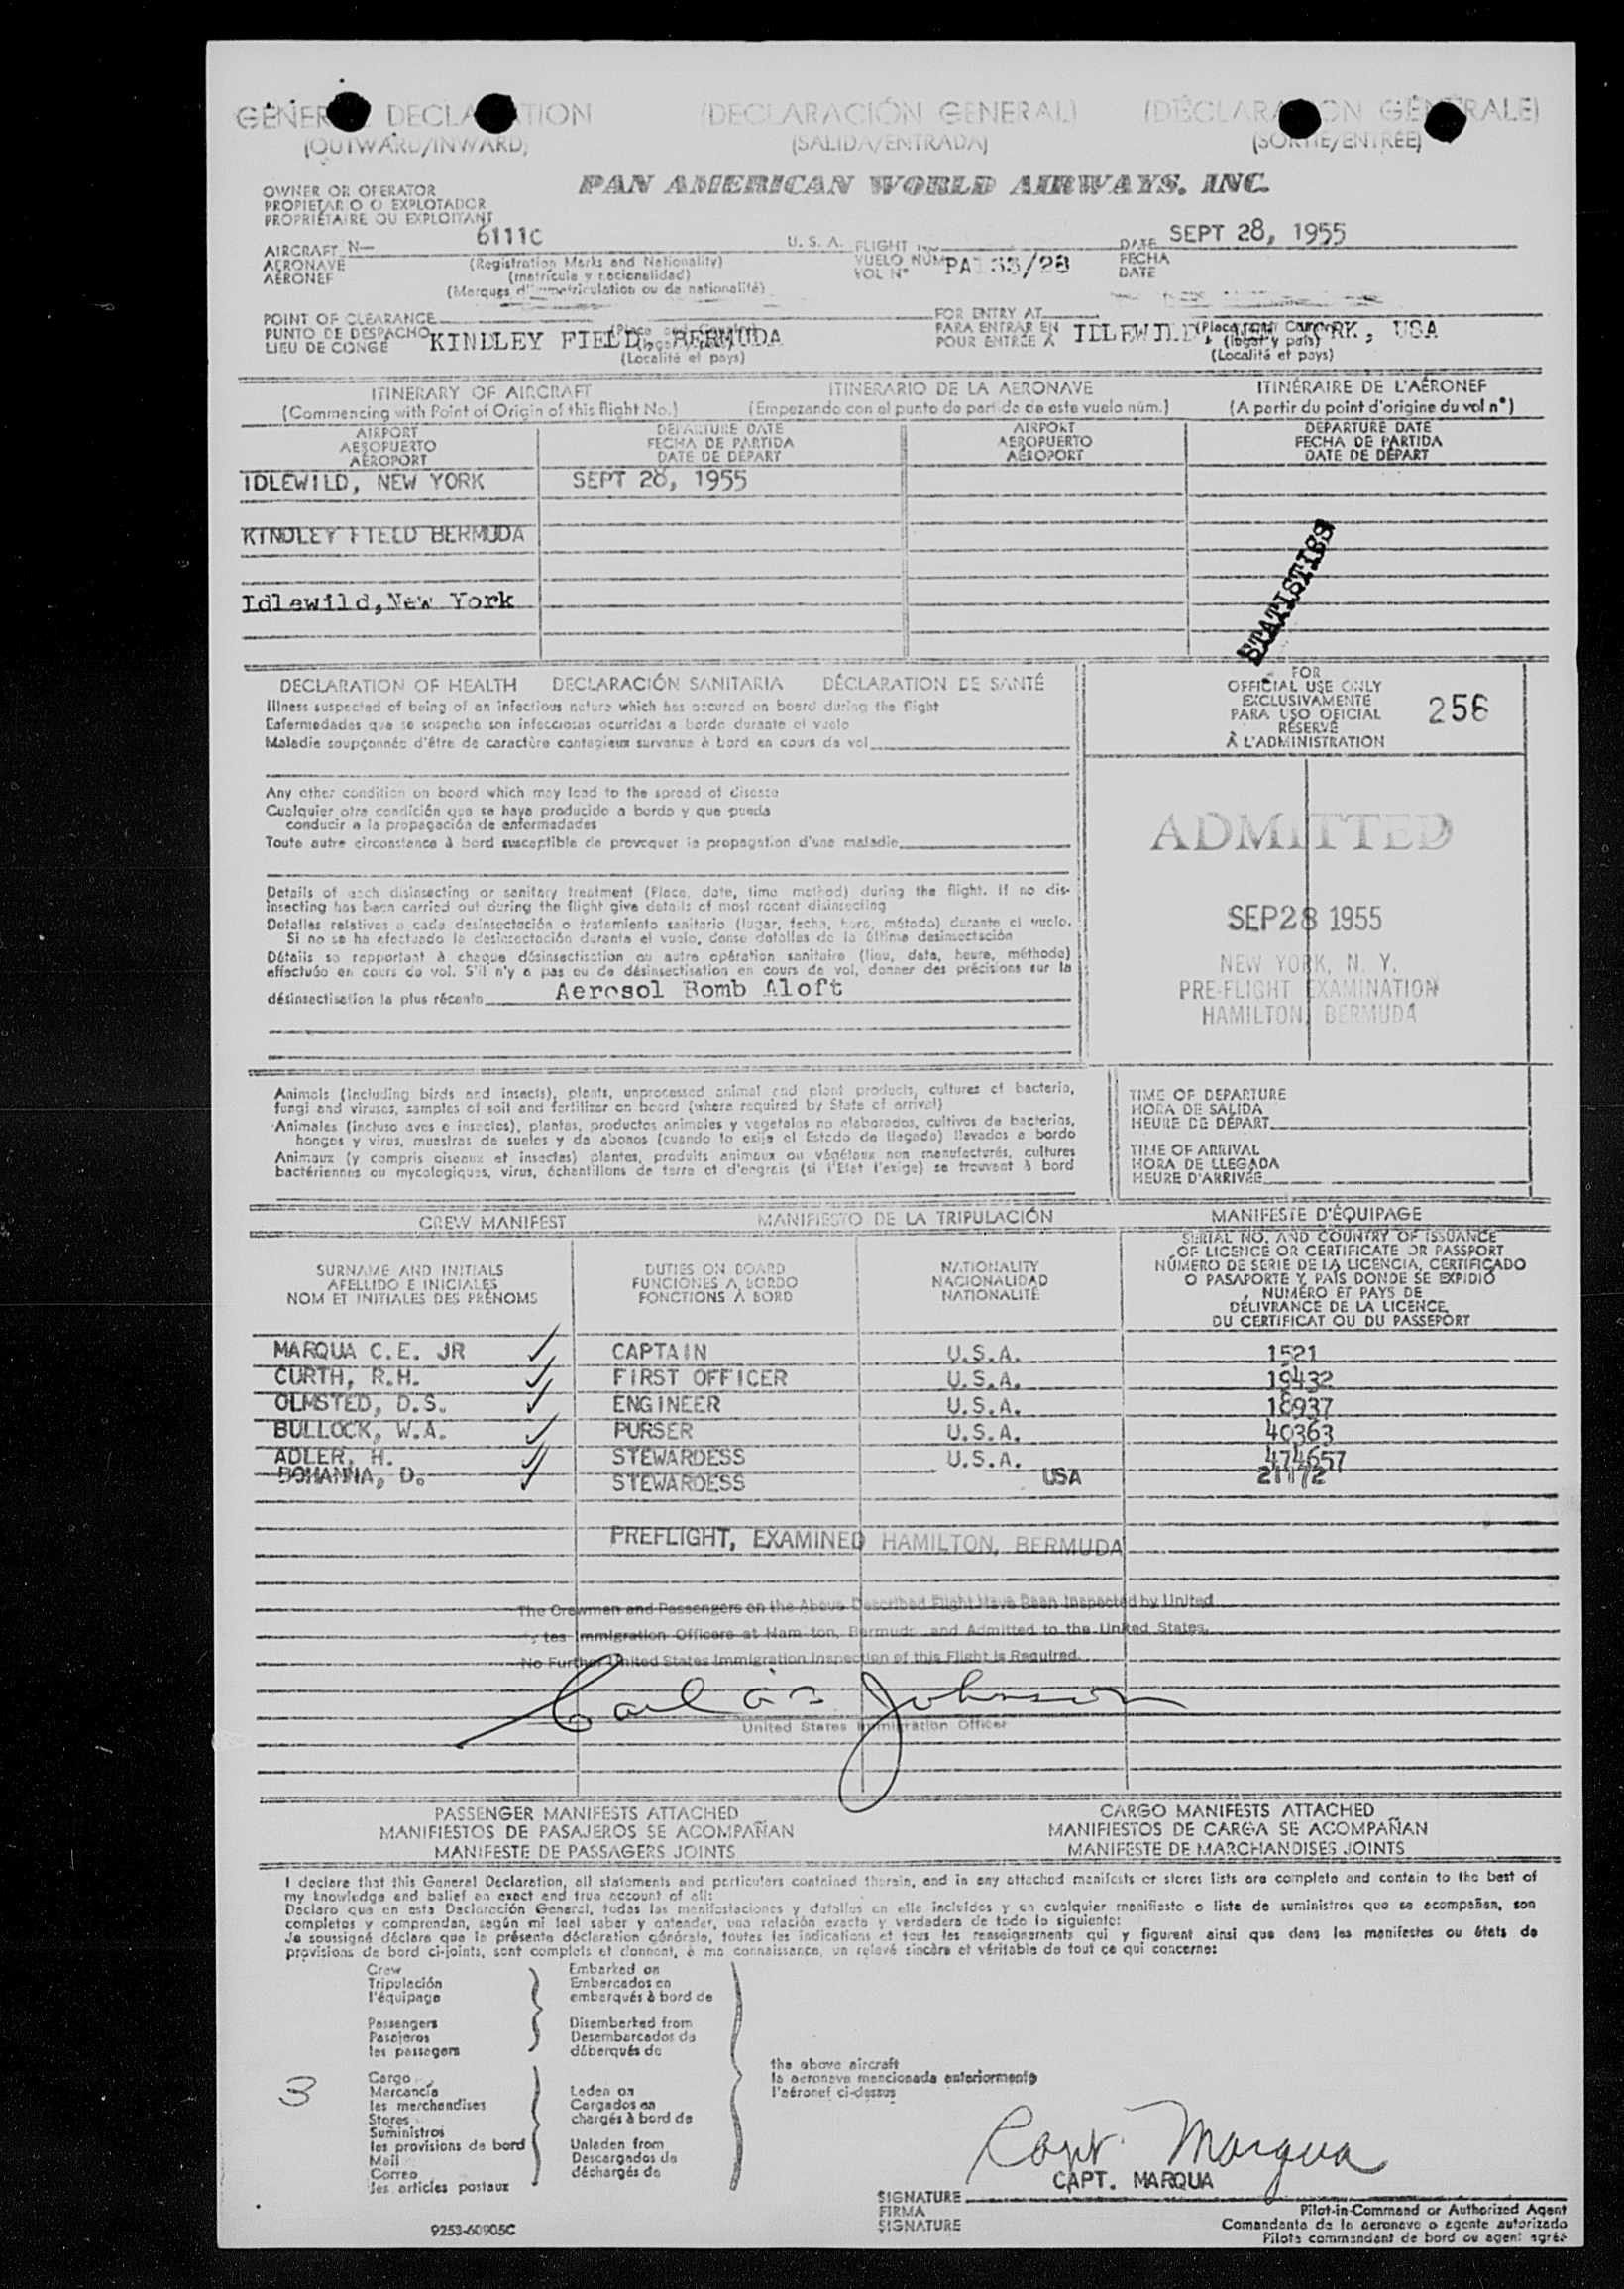 GENERAL DECLARATION (DECLARACIÓN GENERAL) (DÉCLARATION GÉNÉRALE)
(OUTWARD/INWARD) (SALIDA/ENTRADA) (SORTIE/ENTRÉE)
PAN AMERICAN WORLD AIRWAYS, INC.
OWNER OR OPERATOR
PROPIETARIO O EXPLOTADOR
PROPRIÉTAIRE OU EXPLOITANT
AIRCRAFT N— 6111C U. S. A. FLIGHT NO. DATE SEPT 28, 1955
AERONAVE (Registration Marks and Nationality) VUELO NÚM. FECHA
AÉRONEF (matrícula y nacionalidad) VOL Nº /28 DATE
(Marques d'immatriculation ou de nationalité)
POINT OF CLEARANCE FOR ENTRY AT
PUNTO DE DESPACHO KINDLEY FIELD, BERMUDA PARA ENTRAR EN IDLEWILD, YORK, USA
LIEU DE CONGÉ (Localité et pays) POUR ENTRÉE À (Localité et pays)
ITINERARY OF AIRCRAFT ITINERARIO DE LA AERONAVE ITINÉRAIRE DE L'AÉRONEF
(Commencing with Point of Origin of this flight No.) (Empezando con el punto de partida de este vuelo núm.) (A partir du point d'origine du vol nº)
AIRPORT DEPARTURE DATE AIRPORT DEPARTURE DATE
AEROPUERTO FECHA DE PARTIDA AEROPUERTO FECHA DE PARTIDA
AÉROPORT DATE DE DÉPART AÉROPORT DATE DE DÉPART
IDLEWILD, NEW YORK SEPT 28, 1955
KINDLEY FIELD BERMUDA
Idlewild, New York
STATISTICS
DECLARATION OF HEALTH DECLARACIÓN SANITARIA DÉCLARATION DE SANTÉ
Illness suspected of being of an infectious nature which has occured on board during the flight
Enfermedades que se sospecha son infecciosas ocurridas a bordo durante el vuelo
Maladie soupçonnée d'être de caractère contagieux survenue à bord en cours de vol
FOR
OFFICIAL USE ONLY
EXCLUSIVAMENTE
PARA USO OFICIAL
RÉSERVÉ
À L'ADMINISTRATION
256
Any other condition on board which may lead to the spread of disease
Cualquier otra condición que se haya producido a bordo y que pueda
conducir a la propagación de enfermedades
Toute autre circonstance à bord susceptible de provoquer la propagation d'une maladie
Details of each disinsecting or sanitary treatment (Place, date, time, method) during the flight. If no dis-
insecting has been carried out during the flight give details of most recent disinsecting
Detalles relativos a cada desinsectación o tratamiento sanitario (lugar, fecha, hora, método) durante el vuelo.
Si no se ha efectuado la desinsectación durante el vuelo, dense detalles de la última desinsectación
Détails se rapportant à chaque désinsectisation ou autre opération sanitaire (lieu, date, heure, méthode)
effectuée en cours de vol. S'il n'y a pas eu de désinsectisation en cours de vol, donner des précisions sur la
désinsectisation la plus récente Aerosol Bomb Aloft
ADMITTED
SEP 28 1955
NEW YORK, N. Y.
PRE-FLIGHT EXAMINATION
HAMILTON, BERMUDA
Animals (including birds and insects), plants, unprocessed animal and plant products, cultures of bacteria,
fungi and viruses, samples of soil and fertilizer on board (where required by State of arrival)
Animales (incluso aves e insectos), plantas, productos animales y vegetales no elaborados, cultivos de bacterias,
hongos y virus, muestras de suelos y de abonos (cuando lo exija el Estado de llegada) llevados a bordo
Animaux (y compris oiseaux et insectes) plantes, produits animaux ou végétaux non manufacturés, cultures
bactériennes ou mycologiques, virus, échantillons de terre et d'engrais (si l'Etat l'exige) se trouvant à bord
TIME OF DEPARTURE
HORA DE SALIDA
HEURE DE DÉPART
TIME OF ARRIVAL
HORA DE LLEGADA
HEURE D'ARRIVÉE
CREW MANIFEST MANIFIESTO DE LA TRIPULACIÓN MANIFESTE D'ÉQUIPAGE
SURNAME AND INITIALS
APELLIDO E INICIALES
NOM ET INITIALES DES PRÉNOMS
DUTIES ON BOARD
FUNCIONES A BORDO
FONCTIONS À BORD
NATIONALITY
NACIONALIDAD
NATIONALITÉ
SERIAL NO. AND COUNTRY OF ISSUANCE
OF LICENCE OR CERTIFICATE OR PASSPORT
NÚMERO DE SERIE DE LA LICENCIA, CERTIFICADO
O PASAPORTE Y PAÍS DONDE SE EXPIDIÓ
NUMÉRO ET PAYS DE
DÉLIVRANCE DE LA LICENCE,
DU CERTIFICAT OU DU PASSEPORT
MARQUA C.E. JR CAPTAIN U.S.A. 1521
CURTH, R.H. FIRST OFFICER U.S.A. 19432
OLMSTED, D.S. ENGINEER U.S.A. 18937
BULLOCK, W.A. PURSER U.S.A. 40363
ADLER, H. STEWARDESS U.S.A. 474657
BOHANNA, D. STEWARDESS USA
PREFLIGHT, EXAMINED HAMILTON, BERMUDA
The Crewmen and Passengers on the Above Described Flight Have Been Inspected by United
Immigration Officers at Bermuda and Admitted to the United States.
No Further United States Immigration Inspection of this Flight is Required.
Johnson
United States Immigration Officer
PASSENGER MANIFESTS ATTACHED CARGO MANIFESTS ATTACHED
MANIFIESTOS DE PASAJEROS SE ACOMPAÑAN MANIFIESTOS DE CARGA SE ACOMPAÑAN
MANIFESTE DE PASSAGERS JOINTS MANIFESTE DE MARCHANDISES JOINTS
I declare that this General Declaration, all statements and particulars contained therein, and in any attached manifests or stores lists are complete and contain to the best of
my knowledge and belief an exact and true account of all:
Declaro que en esta Declaración General, todas las manifestaciones y detalles en ella incluidos y en cualquier manifiesto o liste de suministros que se acompañan, son
completos y comprendan, según mi leal saber y entender, una relación exacta y verdadera de todo lo siguiente:
Je soussigné déclare que la présente déclaration générale, toutes les indications et tous les renseignements qui y figurent ainsi que dans les manifestes ou états de
provisions de bord ci-joints, sont complets et donnent, à ma connaissance, un relevé sincère et véritable de tout ce qui concerne:
Crew
Tripulación
l'équipage
Passengers
Pasajeros
les passagers
Embarked on
Embarcados en
embarqués à bord de
Disembarked from
Desembarcados de
déberqués de
3
Cargo
Mercancía
les merchandises
Stores
Suministros
les provisions de bord
Mail
Correo
les articles postaux
Laden on
Cargados en
chargés à bord de
Unladen from
Descargados de
déchargés de
the above aircraft
la aeronave mencionada anteriormente
l'aéronef ci-dessus
Capt. Marqua
CAPT. MARQUA
SIGNATURE
FIRMA
SIGNATURE
Pilot-in-Command or Authorized Agent
Comandante de la aeronave o agente autorizado
Pilote commandant de bord ou agent agréé
9253-60905C